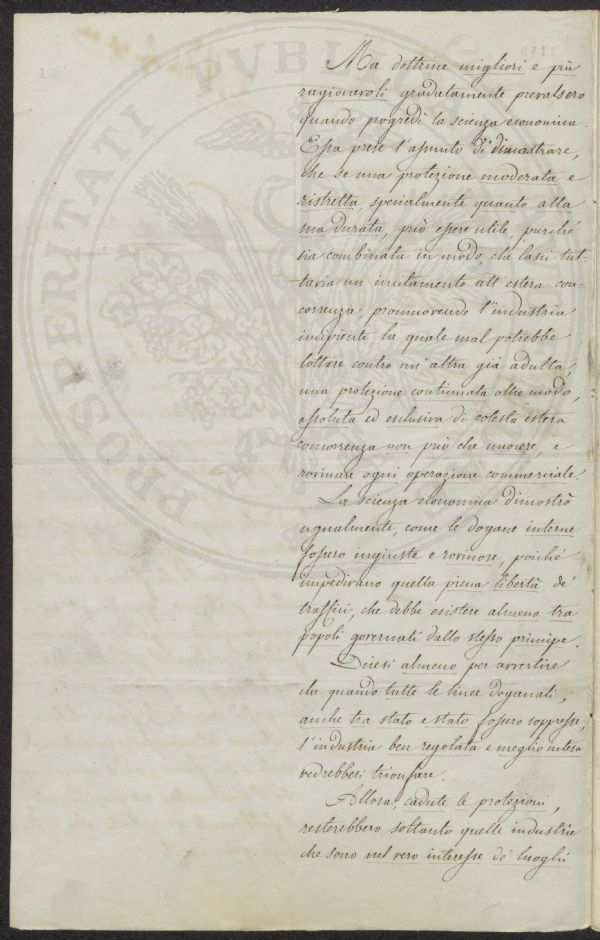 Ma dottrine migliori e più
ragionevoli gradatamente prevalsero
quando progredì la scienza economica.
Essa prese l'assunto di dimostrare,
che se una protezione moderata e
ristretta, specialmente quanto alla
sua durata, può essere utile, purché
sia combinata in modo, che lasci tut-
tavia un incitamento all'estera con-
correnza, promuovendo l'industria
incipiente, la quale mal potrebbe
lottare contro un'altra già adulta,
una protezione continuata oltre modo,
assoluta ed esclusiva di cotesta estera
concorrenza non può che nuocere, e
rovinare ogni operazione commerciale.
La scienza economica dimostrò
ugualmente, come le dogane interne
fossero ingiuste e rovinose, poiché
impedivano quella piena libertà de'
traffici, che debbe esistere almeno tra
popoli governati dallo stesso principe.
Dicesi almeno per avvertire
che quando tutte le linee doganali,
anche tra stato e stato fossero soppresse,
l'industria ben regolata e meglio intesa
vedrebbesi trionfare.
Allora, cadute le protezioni,
resterebbero soltanto quelle industrie
che sono nel vero interesse de' luoghi
PROSPERITATI PVBLI